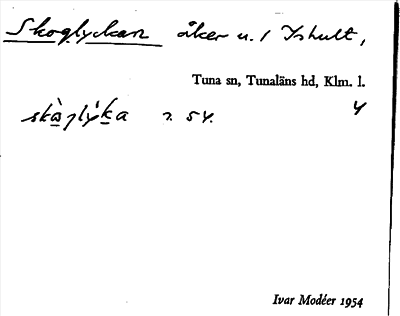 Skoglyckan åker u. 1 Ishult,
Tuna sn, Tunaläns hd, Klm. l.
4
s. 54.
Ivar Modéer 1954